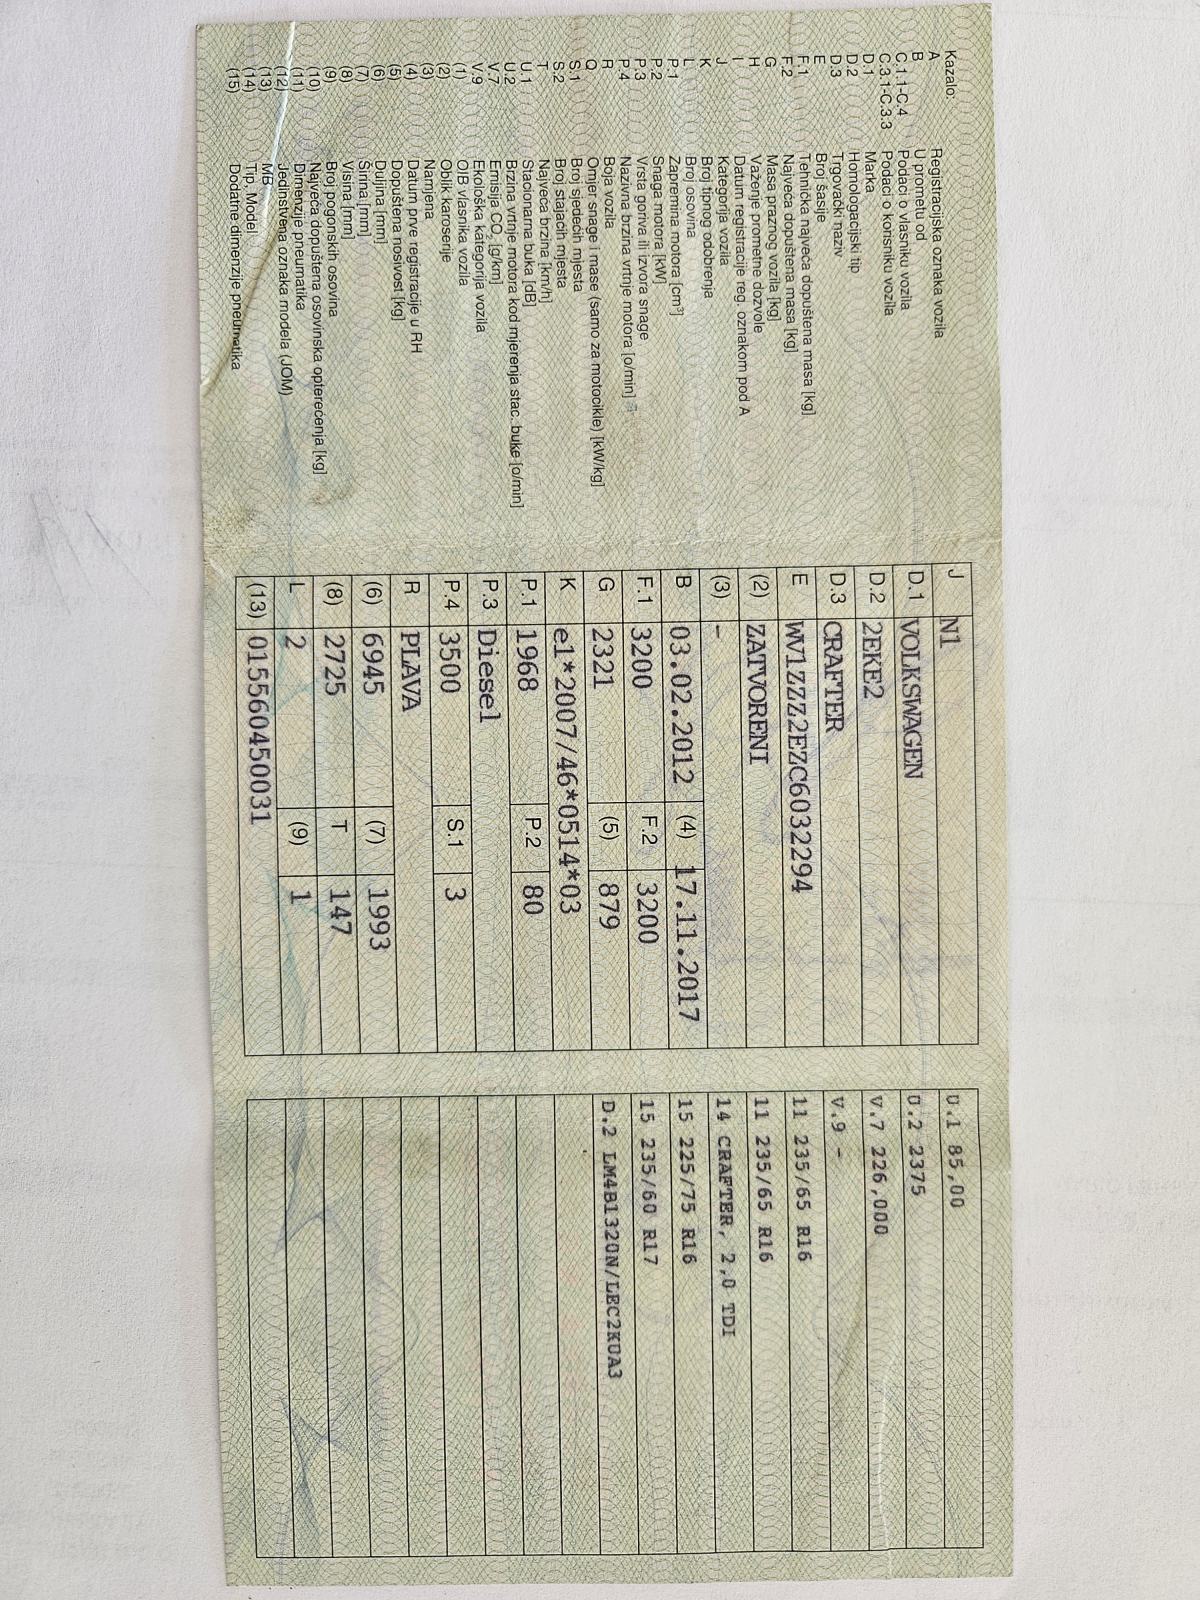 Kazalo:
A Registracijska oznaka vozila
B U prometu od
C.1.1-C.4 Podaci o vlasniku vozila
C.3.1-C.3.3 Podaci o korisniku vozila
D.1 Marka
D.2 Homologacijski tip
D.3 Trgovački naziv
E Broj šasije
F.1 Tehnička najveća dopuštena masa [kg]
F.2 Najveća dopuštena masa [kg]
G Masa praznog vozila [kg]
H Važenje prometne dozvole
I Datum registracije reg. oznakom pod A
J Kategorija vozila
K Broj tipnog odobrenja
L Broj osovina
P.1 Zapremina motora [cm³]
P.2 Snaga motora [kW]
P.3 Vrsta goriva ili izvora snage
P.4 Nazivna brzina vrtnje motora [o/min]
R Boja vozila
Q Omjer snage i mase (samo za motocikle) [kW/kg]
S.1 Broj sjedećih mjesta
S.2 Broj stajaćih mjesta
T Najveća brzina [km/h]
U.1 Stacionarna buka [dB]
U.2 Brzina vrtnje motora kod mjerenja stac. buke [o/min]
V.7 Emisija CO₂ [g/km]
V.9 Ekološka kategorija vozila
(1) OIB vlasnika vozila
(2) Oblik karoserije
(3) Namjena
(4) Datum prve registracije u RH
(5) Dopuštena nosivost [kg]
(6) Duljina [mm]
(7) Širina [mm]
(8) Visina [mm]
(9) Broj pogonskih osovina
(10) Najveća dopuštena osovinska opterećenja [kg]
(11) Dimenzije pneumatika
(12) Jedinstvena oznaka modela (JOM)
(13) MB
(14) Tip, Model
(15) Dodatne dimenzije pneumatika
J N1
D.1 VOLKSWAGEN
D.2 2EKE2
D.3 CRAFTER
E WV1ZZZ2EZC6032294
(2) ZATVORENI
(3) -
B 03.02.2012 (4) 17.11.2017
F.1 3200 F.2 3200
G 2321 (5) 879
K e1*2007/46*0514*03
P.1 1968 P.2 80
P.3 Diesel
P.4 3500 S.1 3
R PLAVA
(6) 6945 (7) 1993
(8) 2725 T 147
L 2 (9) 1
(13) 015560450031
U.1 85,00
U.2 2375
V.7 226,000
V.9 -
11 235/65 R16
11 235/65 R16
14 CRAFTER, 2,0 TDI
15 225/75 R16
15 235/60 R17
D.2 LM4B1320N/LEC2KUA3